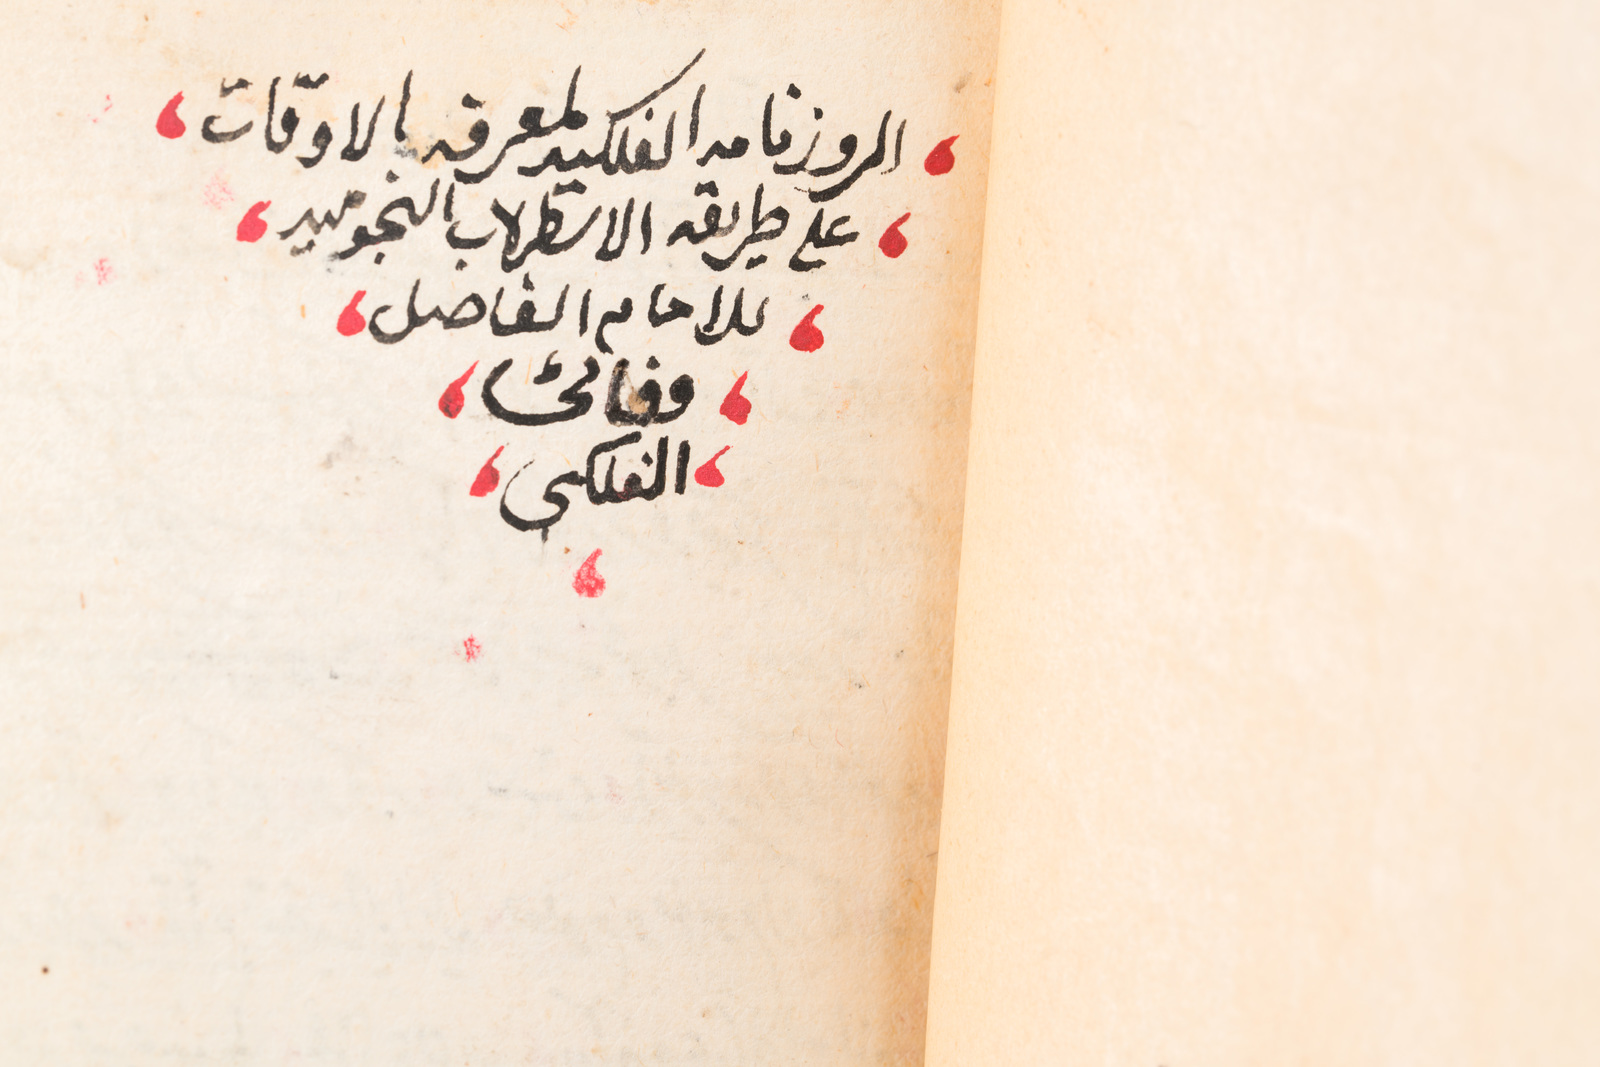 الروزنامه الفلكيه لمعرفه بالاوقات
على طريقه الاسطرلاب النجوميه
للامام الفاضل
وفائى
الفلكي